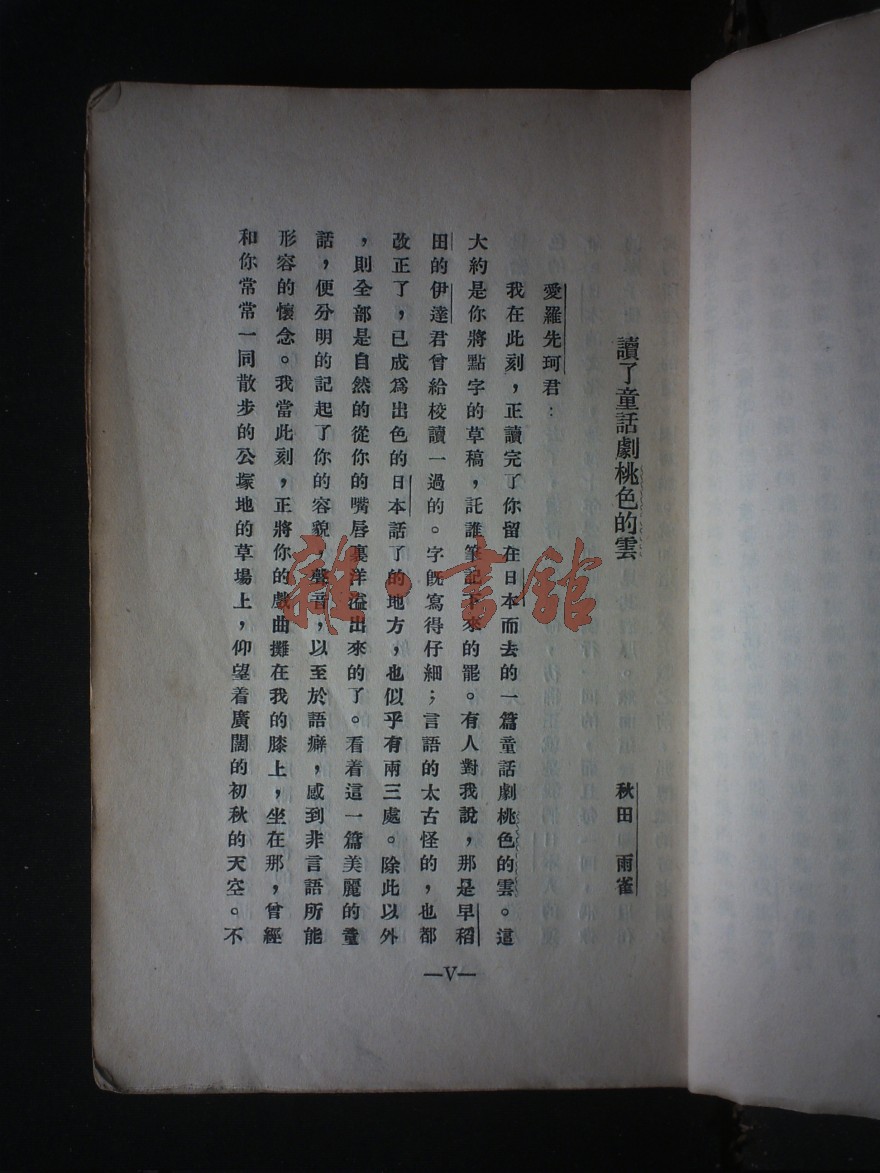 讀了童話劇桃色的雲
秋田 雨雀
愛羅先珂君：
我在此刻，正讀完了你留在日本而去的一篇童話劇桃色的雲。這
大約是你將點字的草稿，託誰筆記下來的罷。有人對我說，那是早稻
田的伊達君曾給校讀一過的。字既寫得仔細；言語的太古怪的，也都
改正了，已成爲出色的日本話了的地方，也似乎有兩三處。除此以外
，則全部是自然的從你的嘴唇裏洋溢出來的了。看着這一篇美麗的童
話，便分明的記起了你的容貌，聲音，以至於語癖，感到非言語所能
形容的懷念。我當此刻，正將你的戲曲攤在我的膝上，坐在那，曾經
和你常常一同散步的公塚地的草場上，仰望着廣闊的初秋的天空。不
—V—
雜·書館